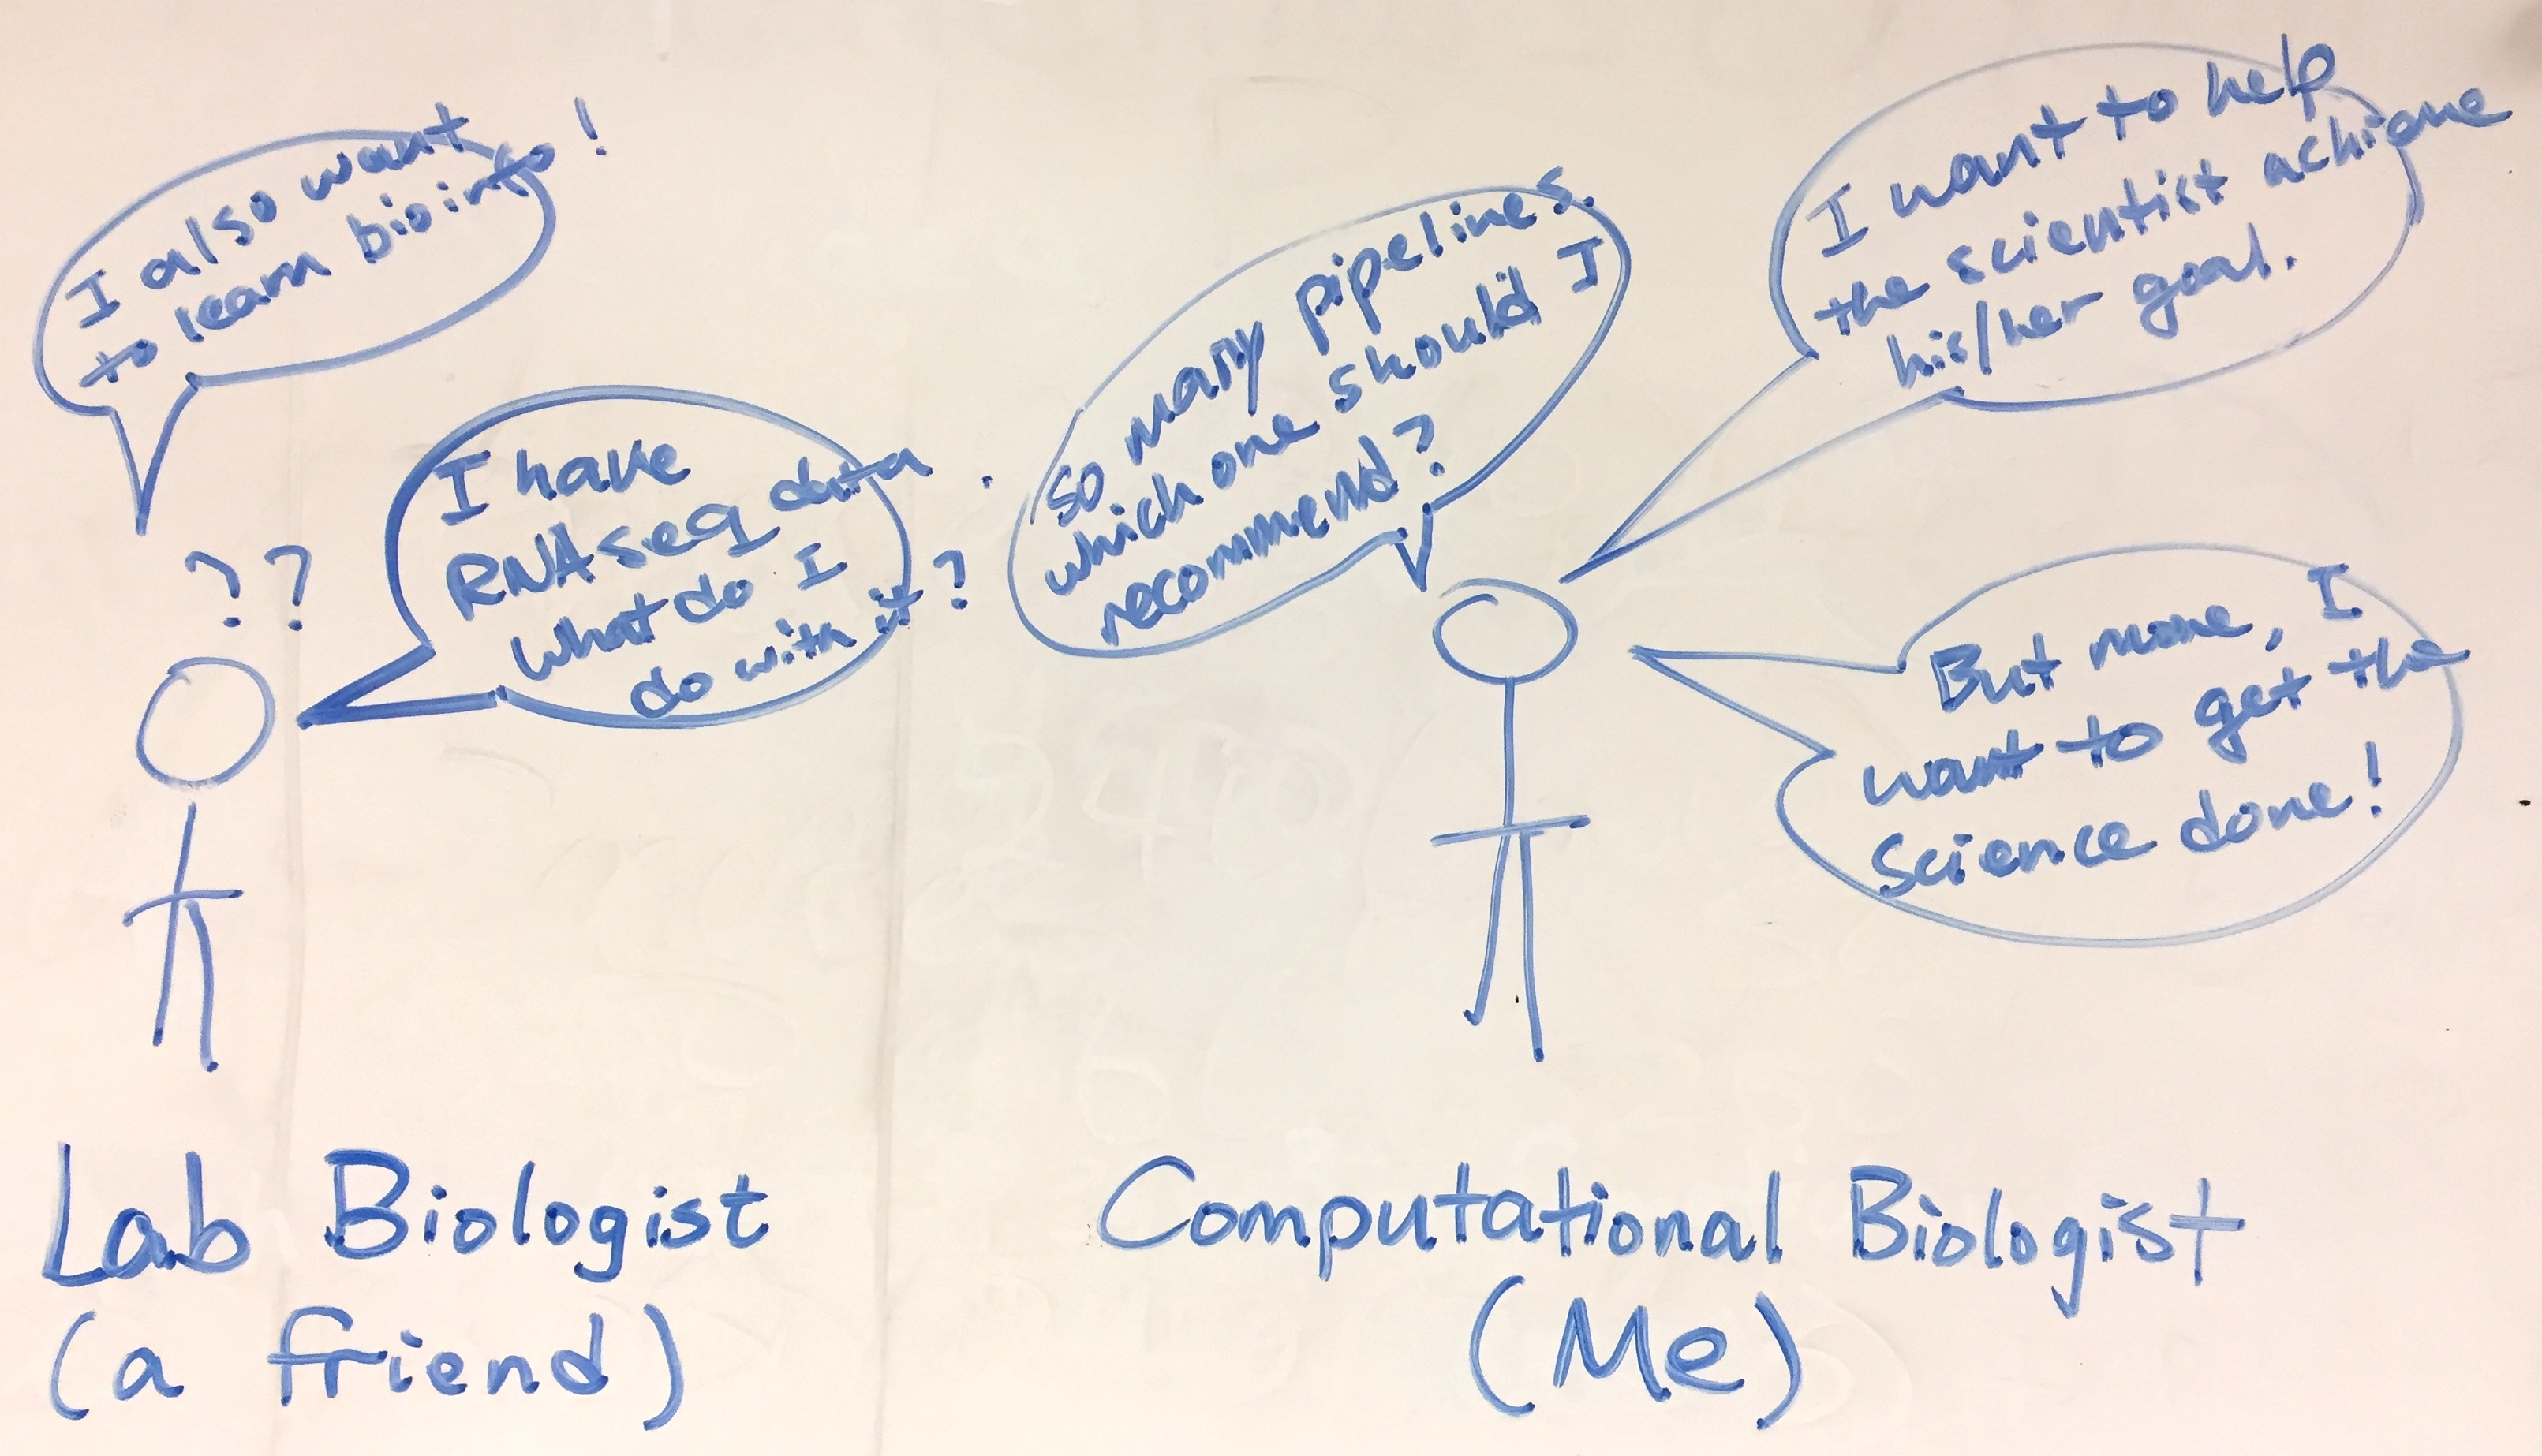 I also want
to learn bioinfo!
??
I have
RNAseq data.
What do I
do with it?
so many pipelines.
which one should I
recommend?
I want to help
the scientist achieve
his/her goal.
But more, I
want to get the
Science done!
Lab Biologist
(a friend)
Computational Biologist
(Me)